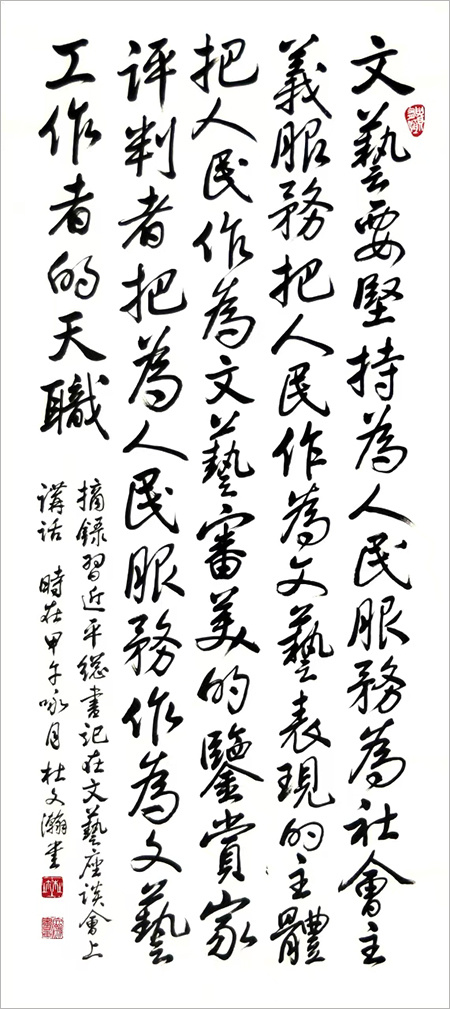 文藝要堅持為人民服務為社會主
義服務把人民作為文藝表現的主體
把人民作為文藝審美的鑒賞家
評判者把為人民服務作為文藝
工作者的天職
摘録習近平總書記在文藝座談會上
講話 時在甲午 月杜文瀚書